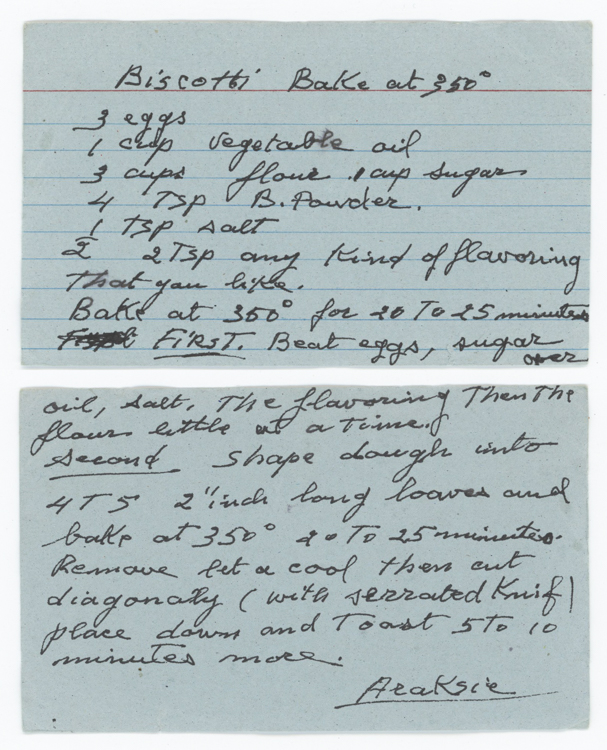 Biscotti Bake at 350°
3 eggs
1 cup vegetable oil
3 cups flour . 1 cup sugar
4 Tsp B. Powder.
1 Tsp salt
2 2 Tsp any Kind of flavoring
That you like.
Bake at 350° for 20 To 25 minutes
FIRST. Beat eggs, sugar
over
oil, salt, The flavoring Then The
flour little at a time.
second shape dough into
4 T 5 2" inch long loaves and
bake at 350° 20 To 25 minutes.
Remove let a cool then cut
diagonaly (with serrated Knif)
place down and Toast 5 To 10
minutes more.
Araksie